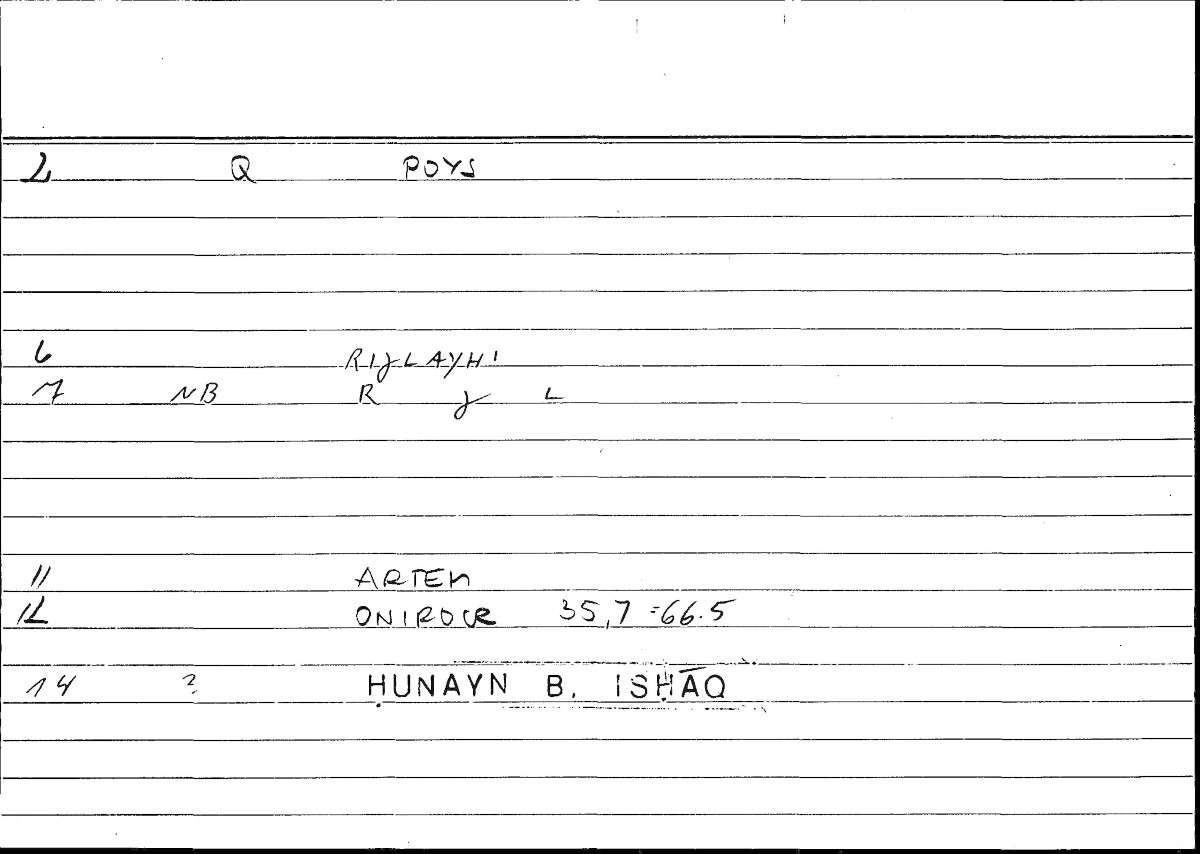 2 Q POYS
6 RIJLAYHI
7 NB R J L
11 ARTEM
12 ONIROCR 35,7 = 66.5
14 ? ḤUNAYN B. ISḤĀQ